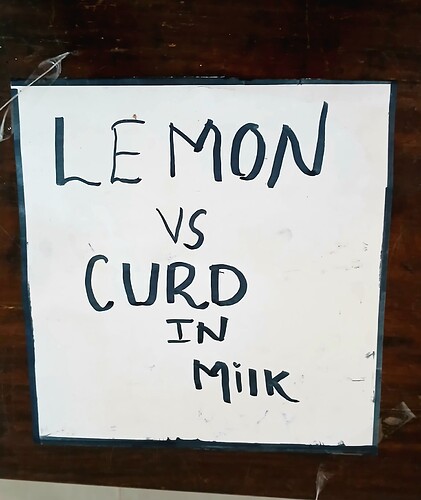 LEMON
VS
CURD
IN
Milk